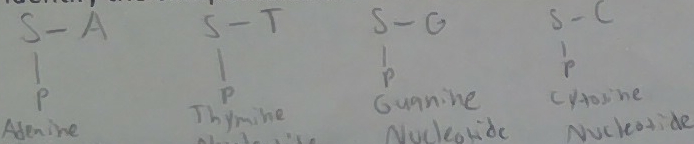 S - A S - T S - G S - C
| | | |
P P P P
Adenine Thymine Guanine Cytosine
Nucleotide Nucleotide